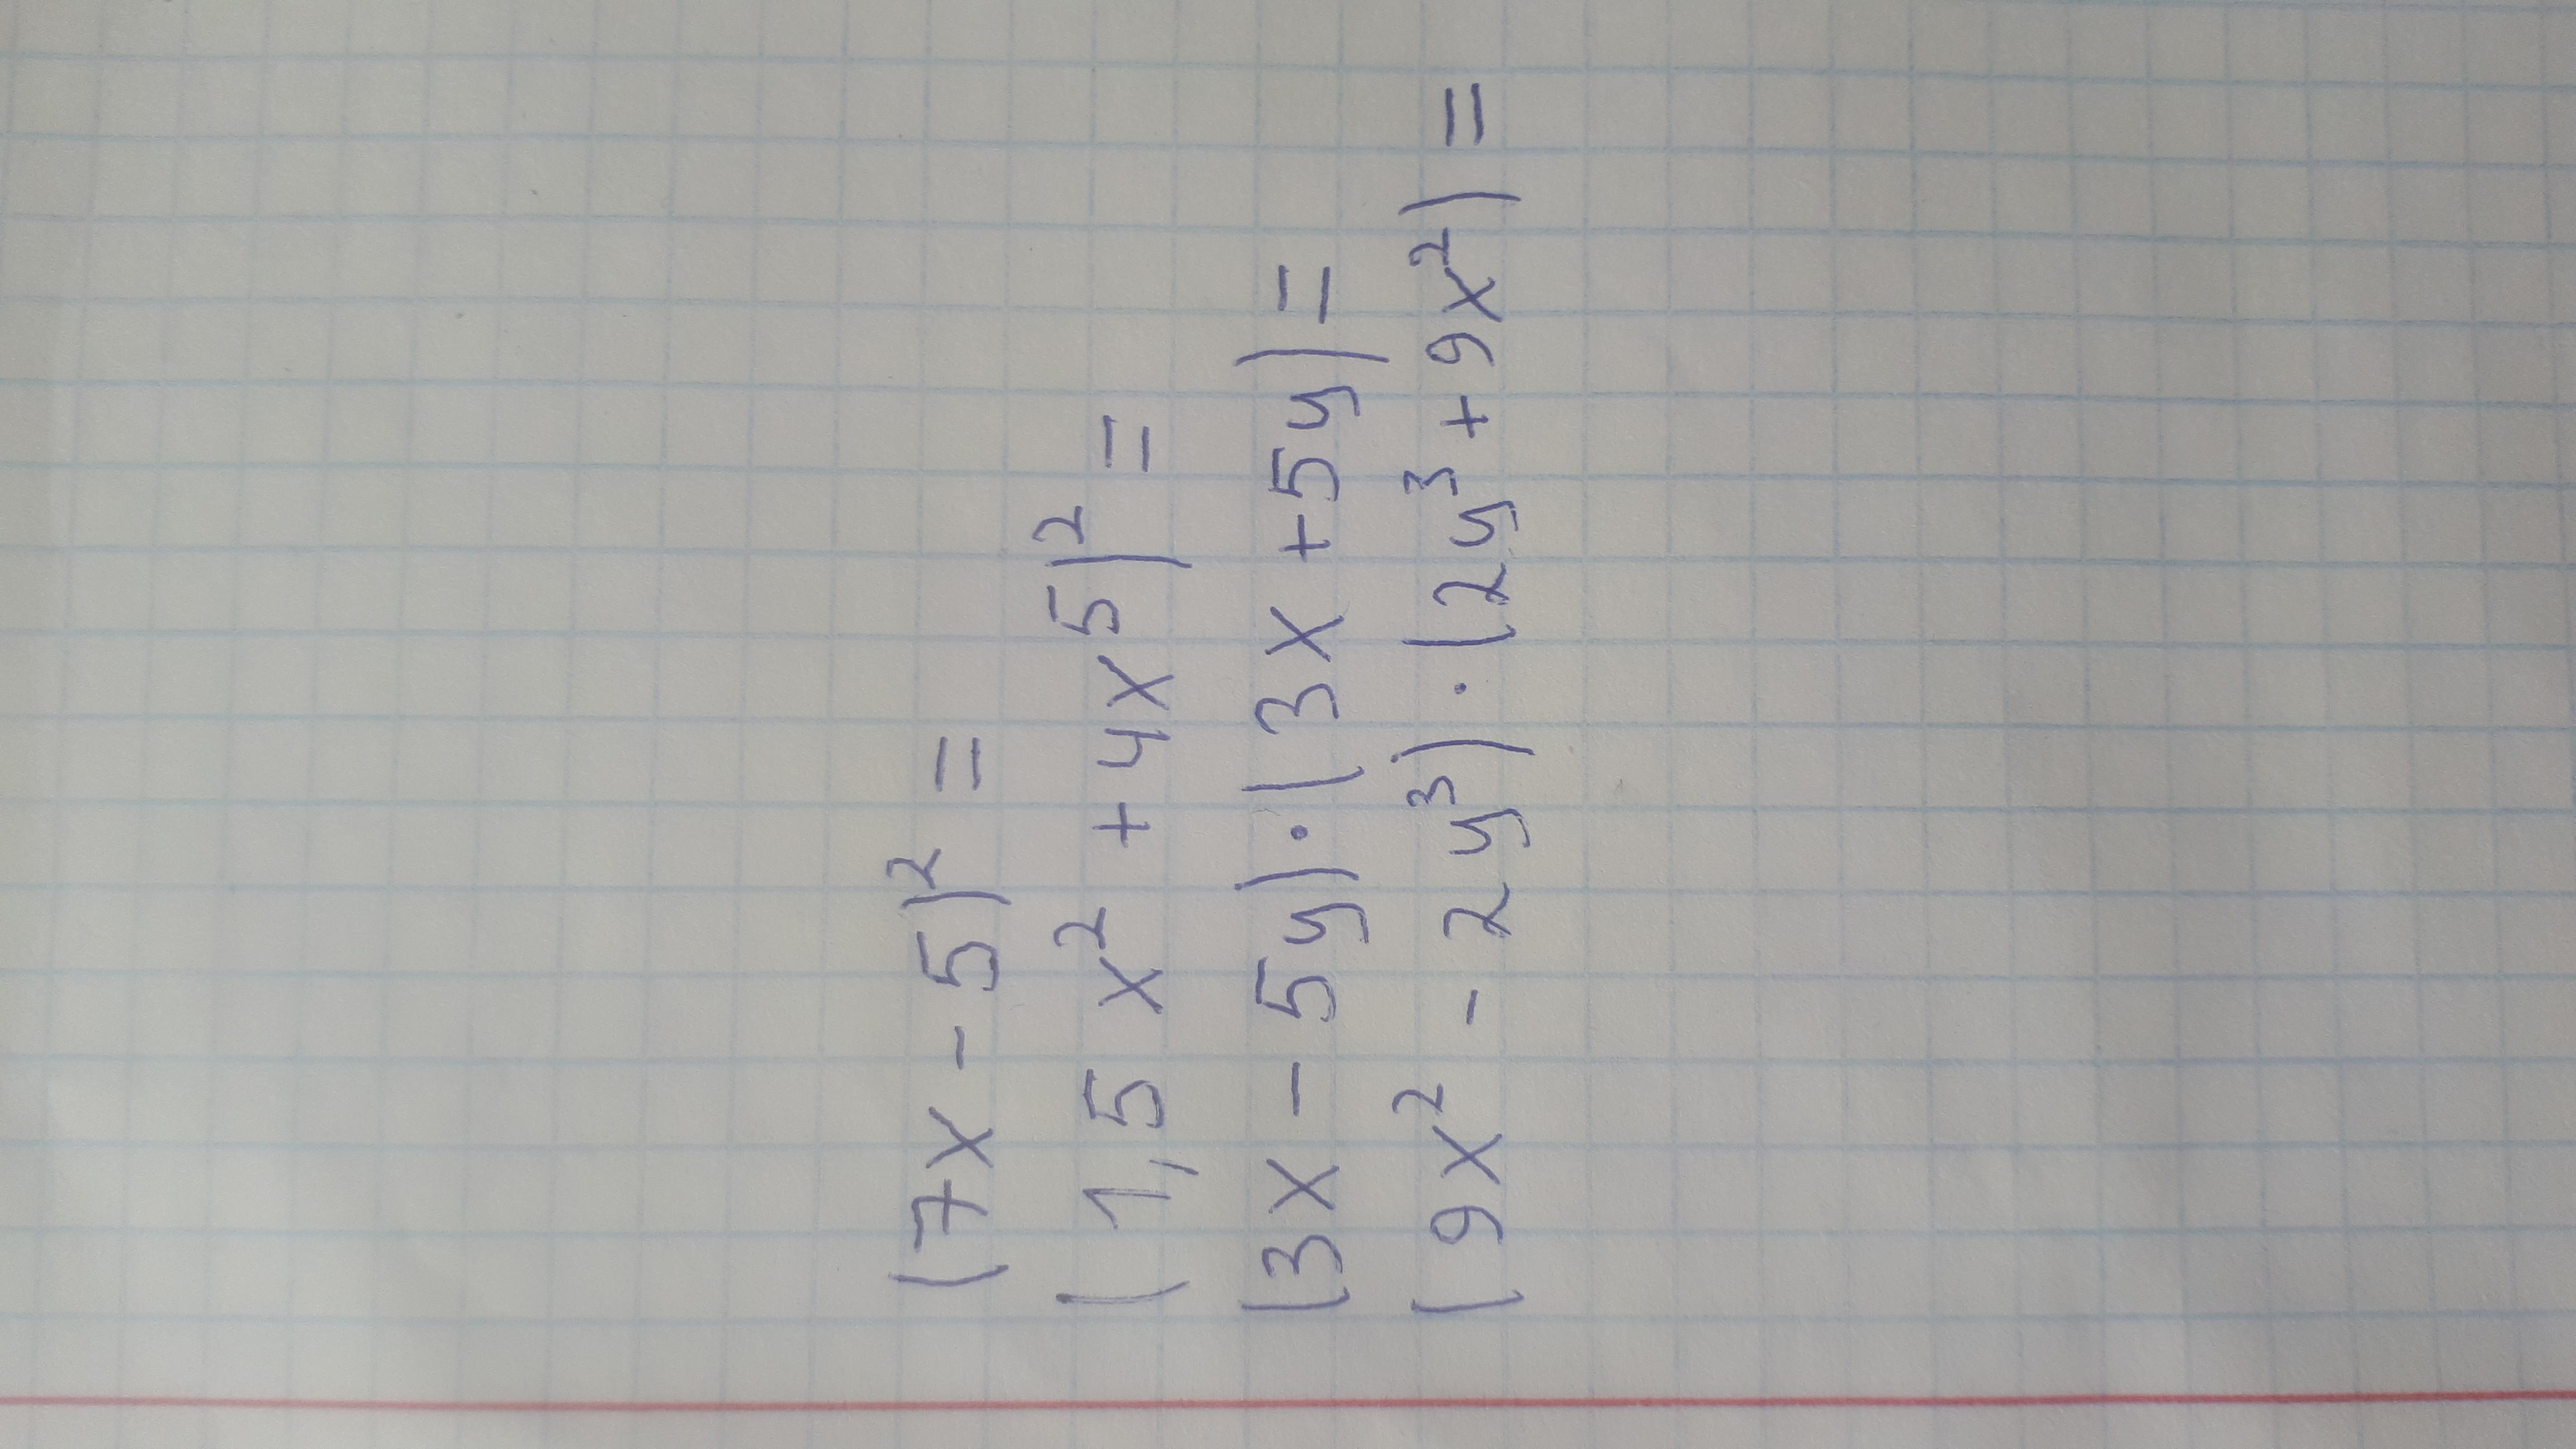 (7x - 5)² =
(1,5 x² + 4x⁵)² =
(3x - 5y) · (3x + 5y) =
(9x² - 2y³) · (2y³ + 9x²) =